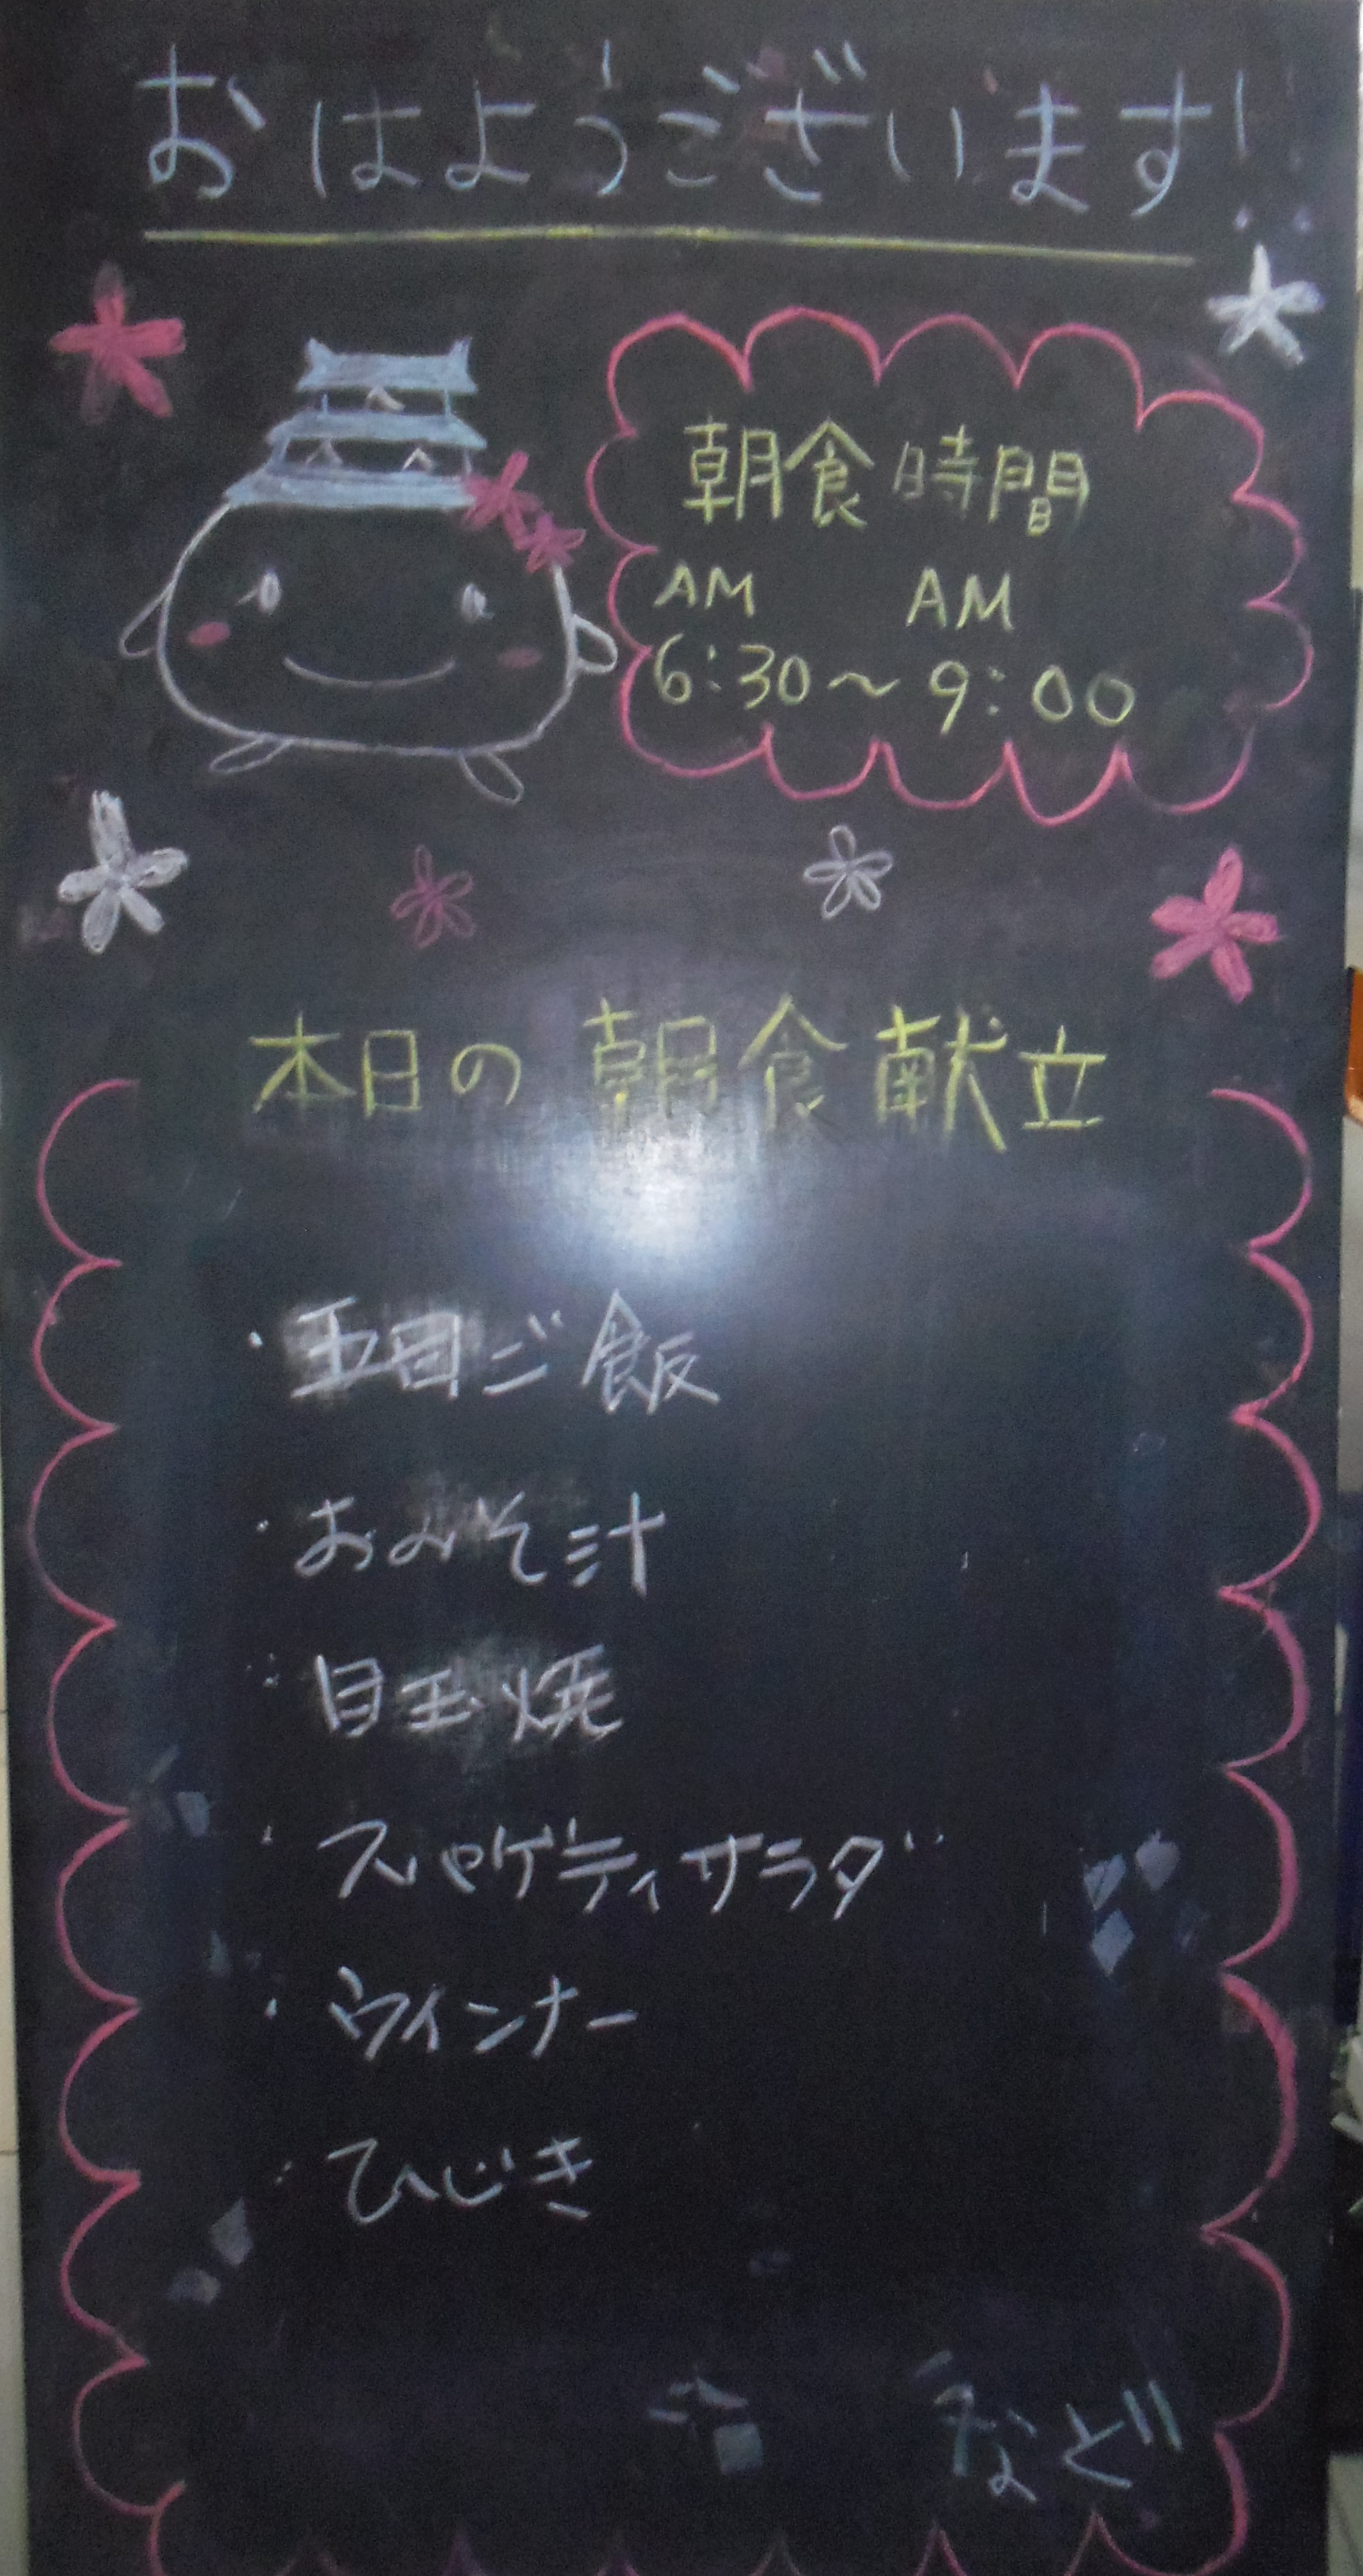 おはようございます!!
朝食時間
AM AM
6:30～9:00
本日の朝食献立
・五目ご飯
・おみそ汁
・目玉焼
・スパゲティサラダ
・ウインナー
・ひじき
など